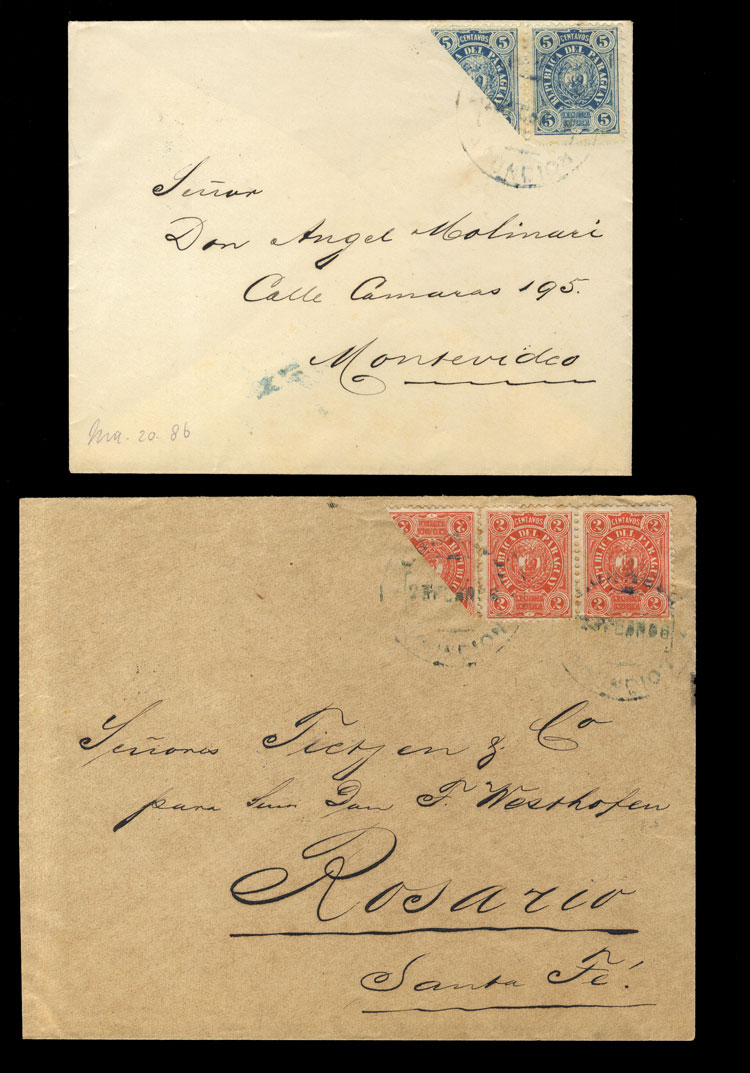 5 CENTAVOS 5
REPUBLICA DEL PARAGUAY
5 5
5 CENTAVOS 5
REPUBLICA DEL PARAGUAY
5 5
Señor
Don Angel Molinari
Calle Camaras 195.
Montevideo
20. 86
2
2
2 CENTAVOS 2
REPUBLICA DEL PARAGUAY
2 2
2 CENTAVOS 2
REPUBLICA DEL PARAGUAY
2 2
Señores Tietjen & Co
para Don F. Westhofen
Rosario
Santa Fé.